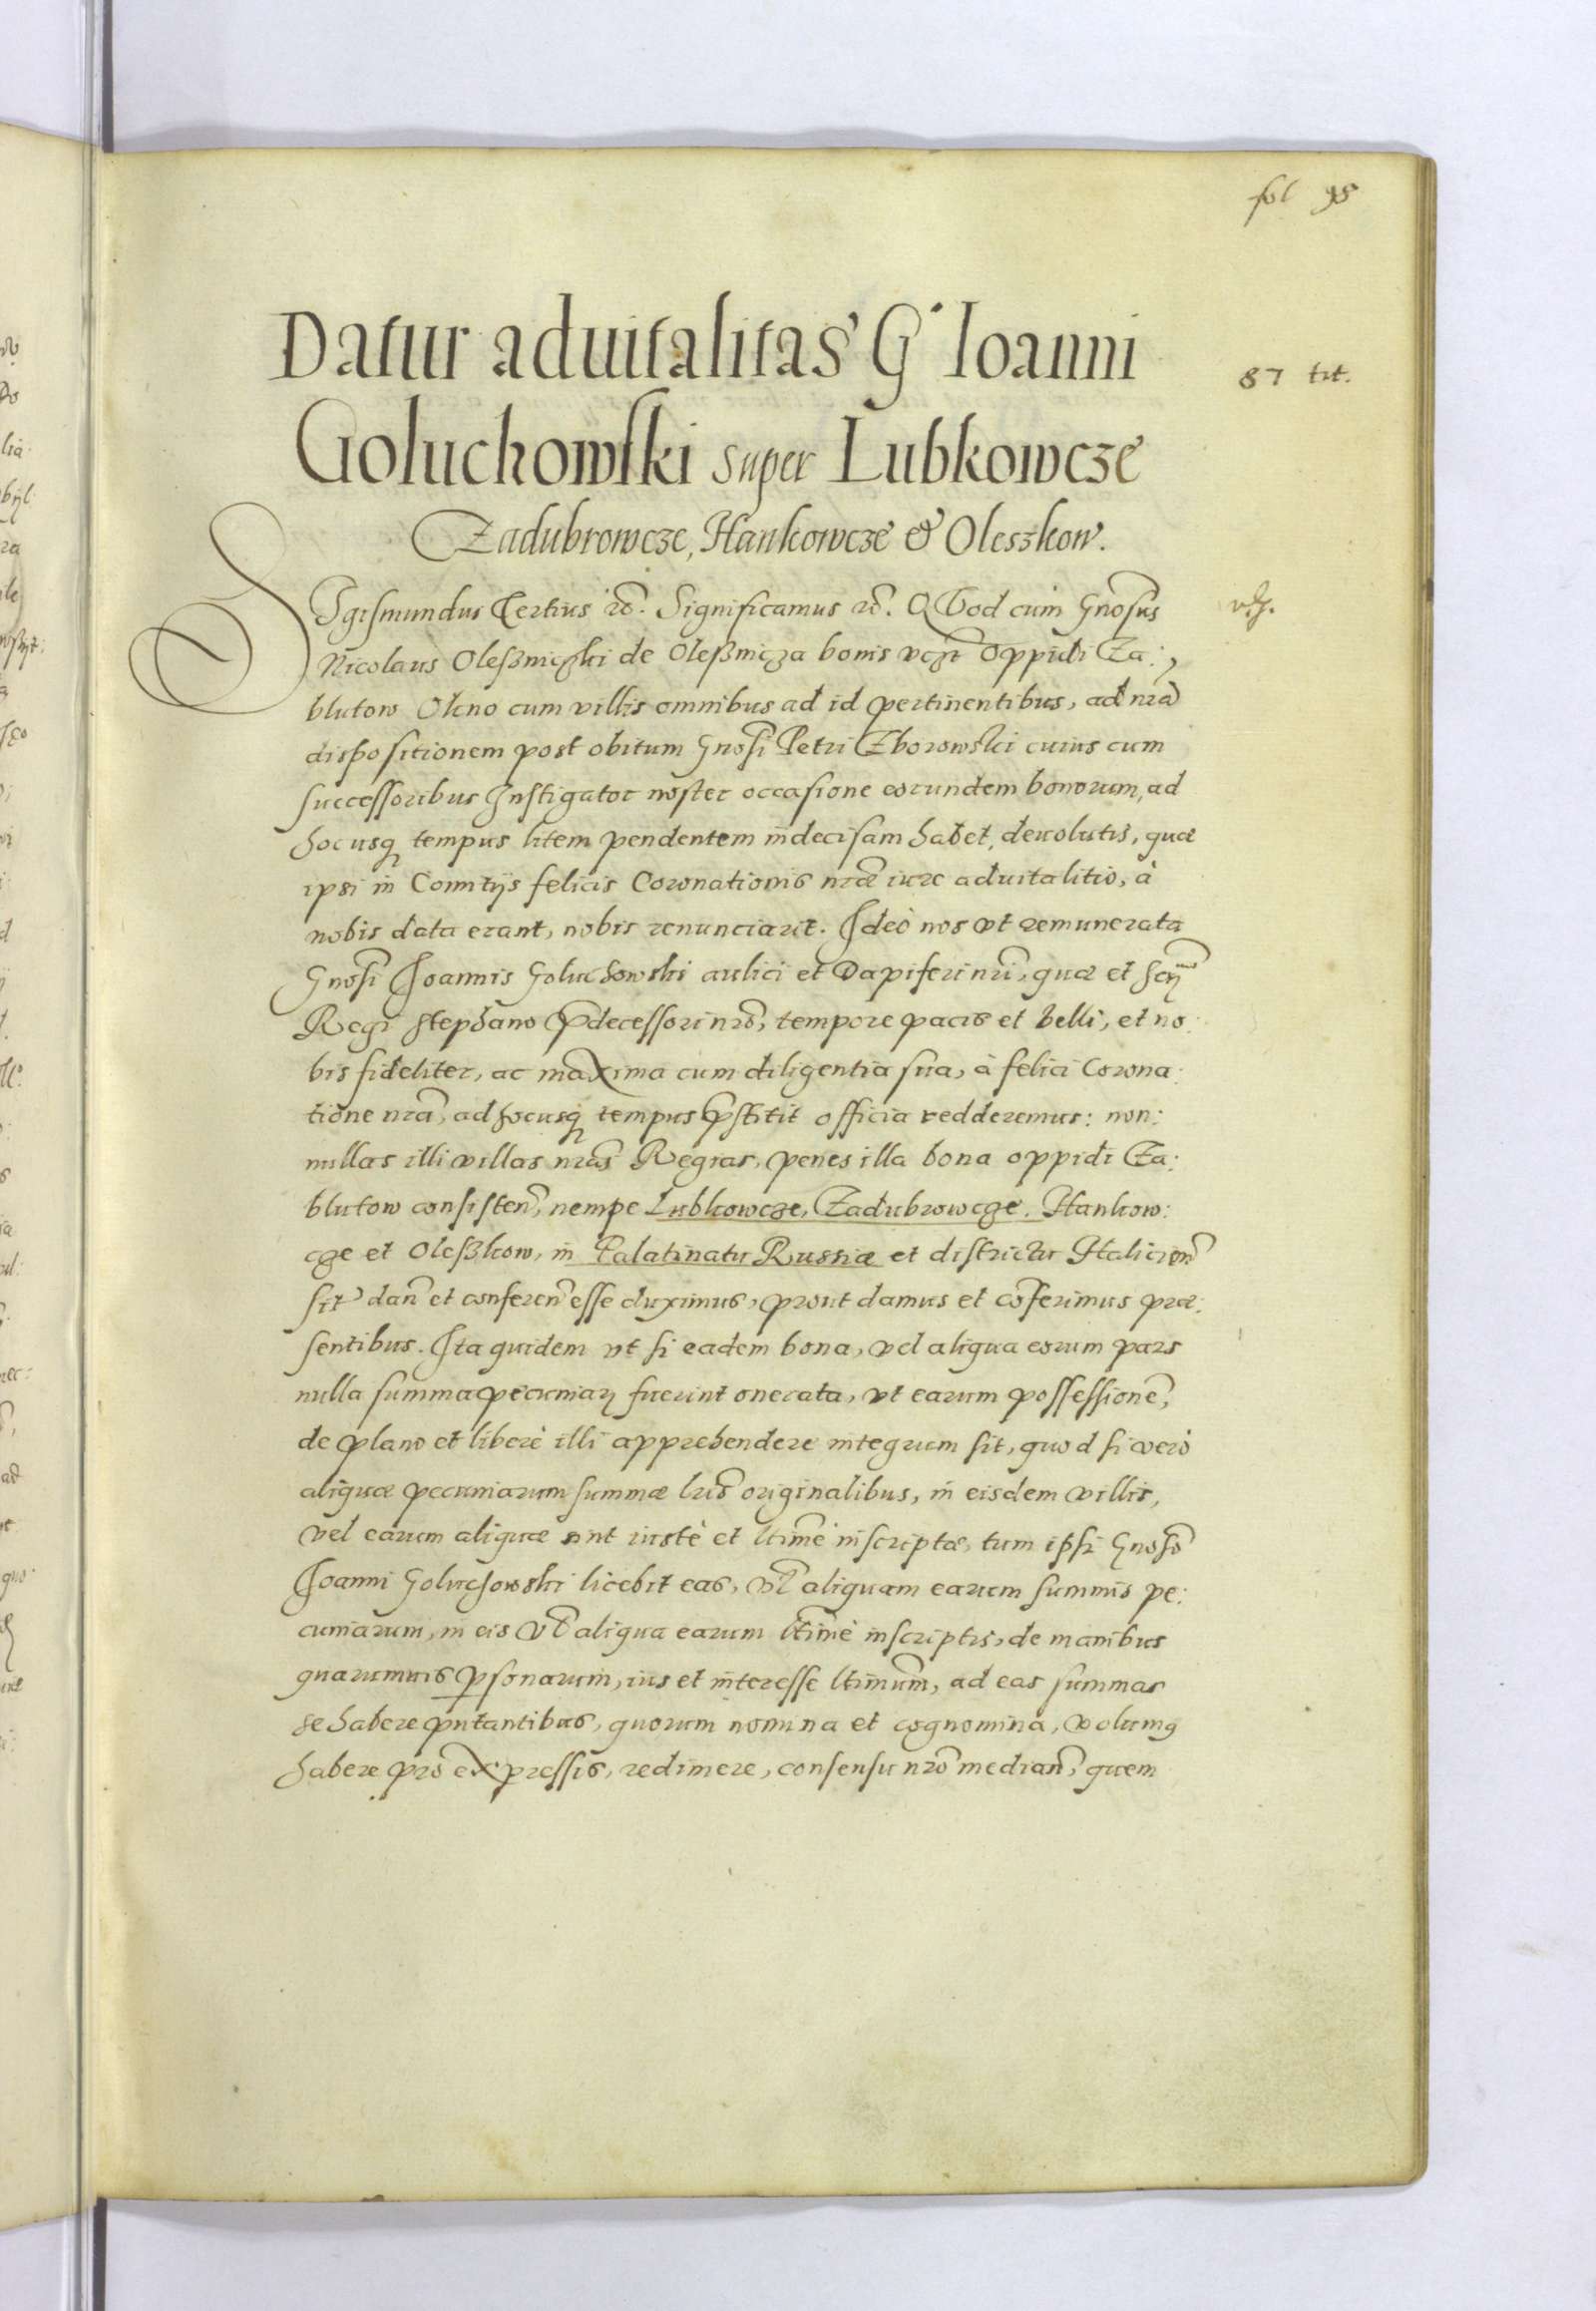 fol 98
Datur aduitalitas G. Ioanni
87 tit.
Goluchowski super Lubkowcze
Zadubrowcze, Hankowcze & Oleszkow.
Sigismundus Tertius rc. Significamus rc. QVod cum Gnosus
Nicolaus Oleßniczki de Oleßnicza bonis vczt Oppidi Za:
blutow Olcno cum villis omnibus ad id pertinentibus, ad nrā
dispositionem post obitum Gnosi Petri Zborowski cuius cum
successoribus Instigator noster occasione eorundem bonorum, ad
hocusq tempus litem pendentem indecisam habet, deuolutis, quæ
ipsi in Comitijs felicis Coronationis nræ iure aduitalitio, à
nobis data erant, nobis renunciarit. Ideò nos vt remunerata
Gnosi Joannis Goluchowski aulici et Dapiferi nri, quæ et Sermo
Regi Stephano Prdecessori nro, tempore pacis et belli, et no:
bis fideliter, ac maxima cum diligentia sua, à felici Corona:
tione nra, ad hocusq tempus prstitit officia redderemus: non:
nullas illi villas nras Regias, penes illa bona oppidi Za:
blutow consisten, nempe Lubkowcze, Zadubrowcze, Hankow:
cze et Oleßkow, in Palatinatu Russiæ et districtu Halicien
sit dan et conferen esse duximus, prout damus et coferimus præ:
sentibus. Ita quidem vt si eadem bona, vel aliqua eorum pars
nulla summa pecuniar fuerint onerata, vt earum possessionē,
de plano et liberè illi apprehendere integrum sit, quod si verò
aliquæ pecuniarum summæ lris originalibus, in eisdem villis,
vel earum aliquæ sint iustè et ltimè inscriptæ, tum ipsi Gnoso
Joanni Goluchowski licebit eas, vl aliquam earum summis pe:
cuniarum, in eis vl aliqua earum ltimè inscriptis, de manibus
quarumuis psonarum, ius et interesse ltimum, ad eas summas
se habere prtantibus, quorum nomina et cognomina, volumq
habere pro expressis, redimere, consensu nro median, quem